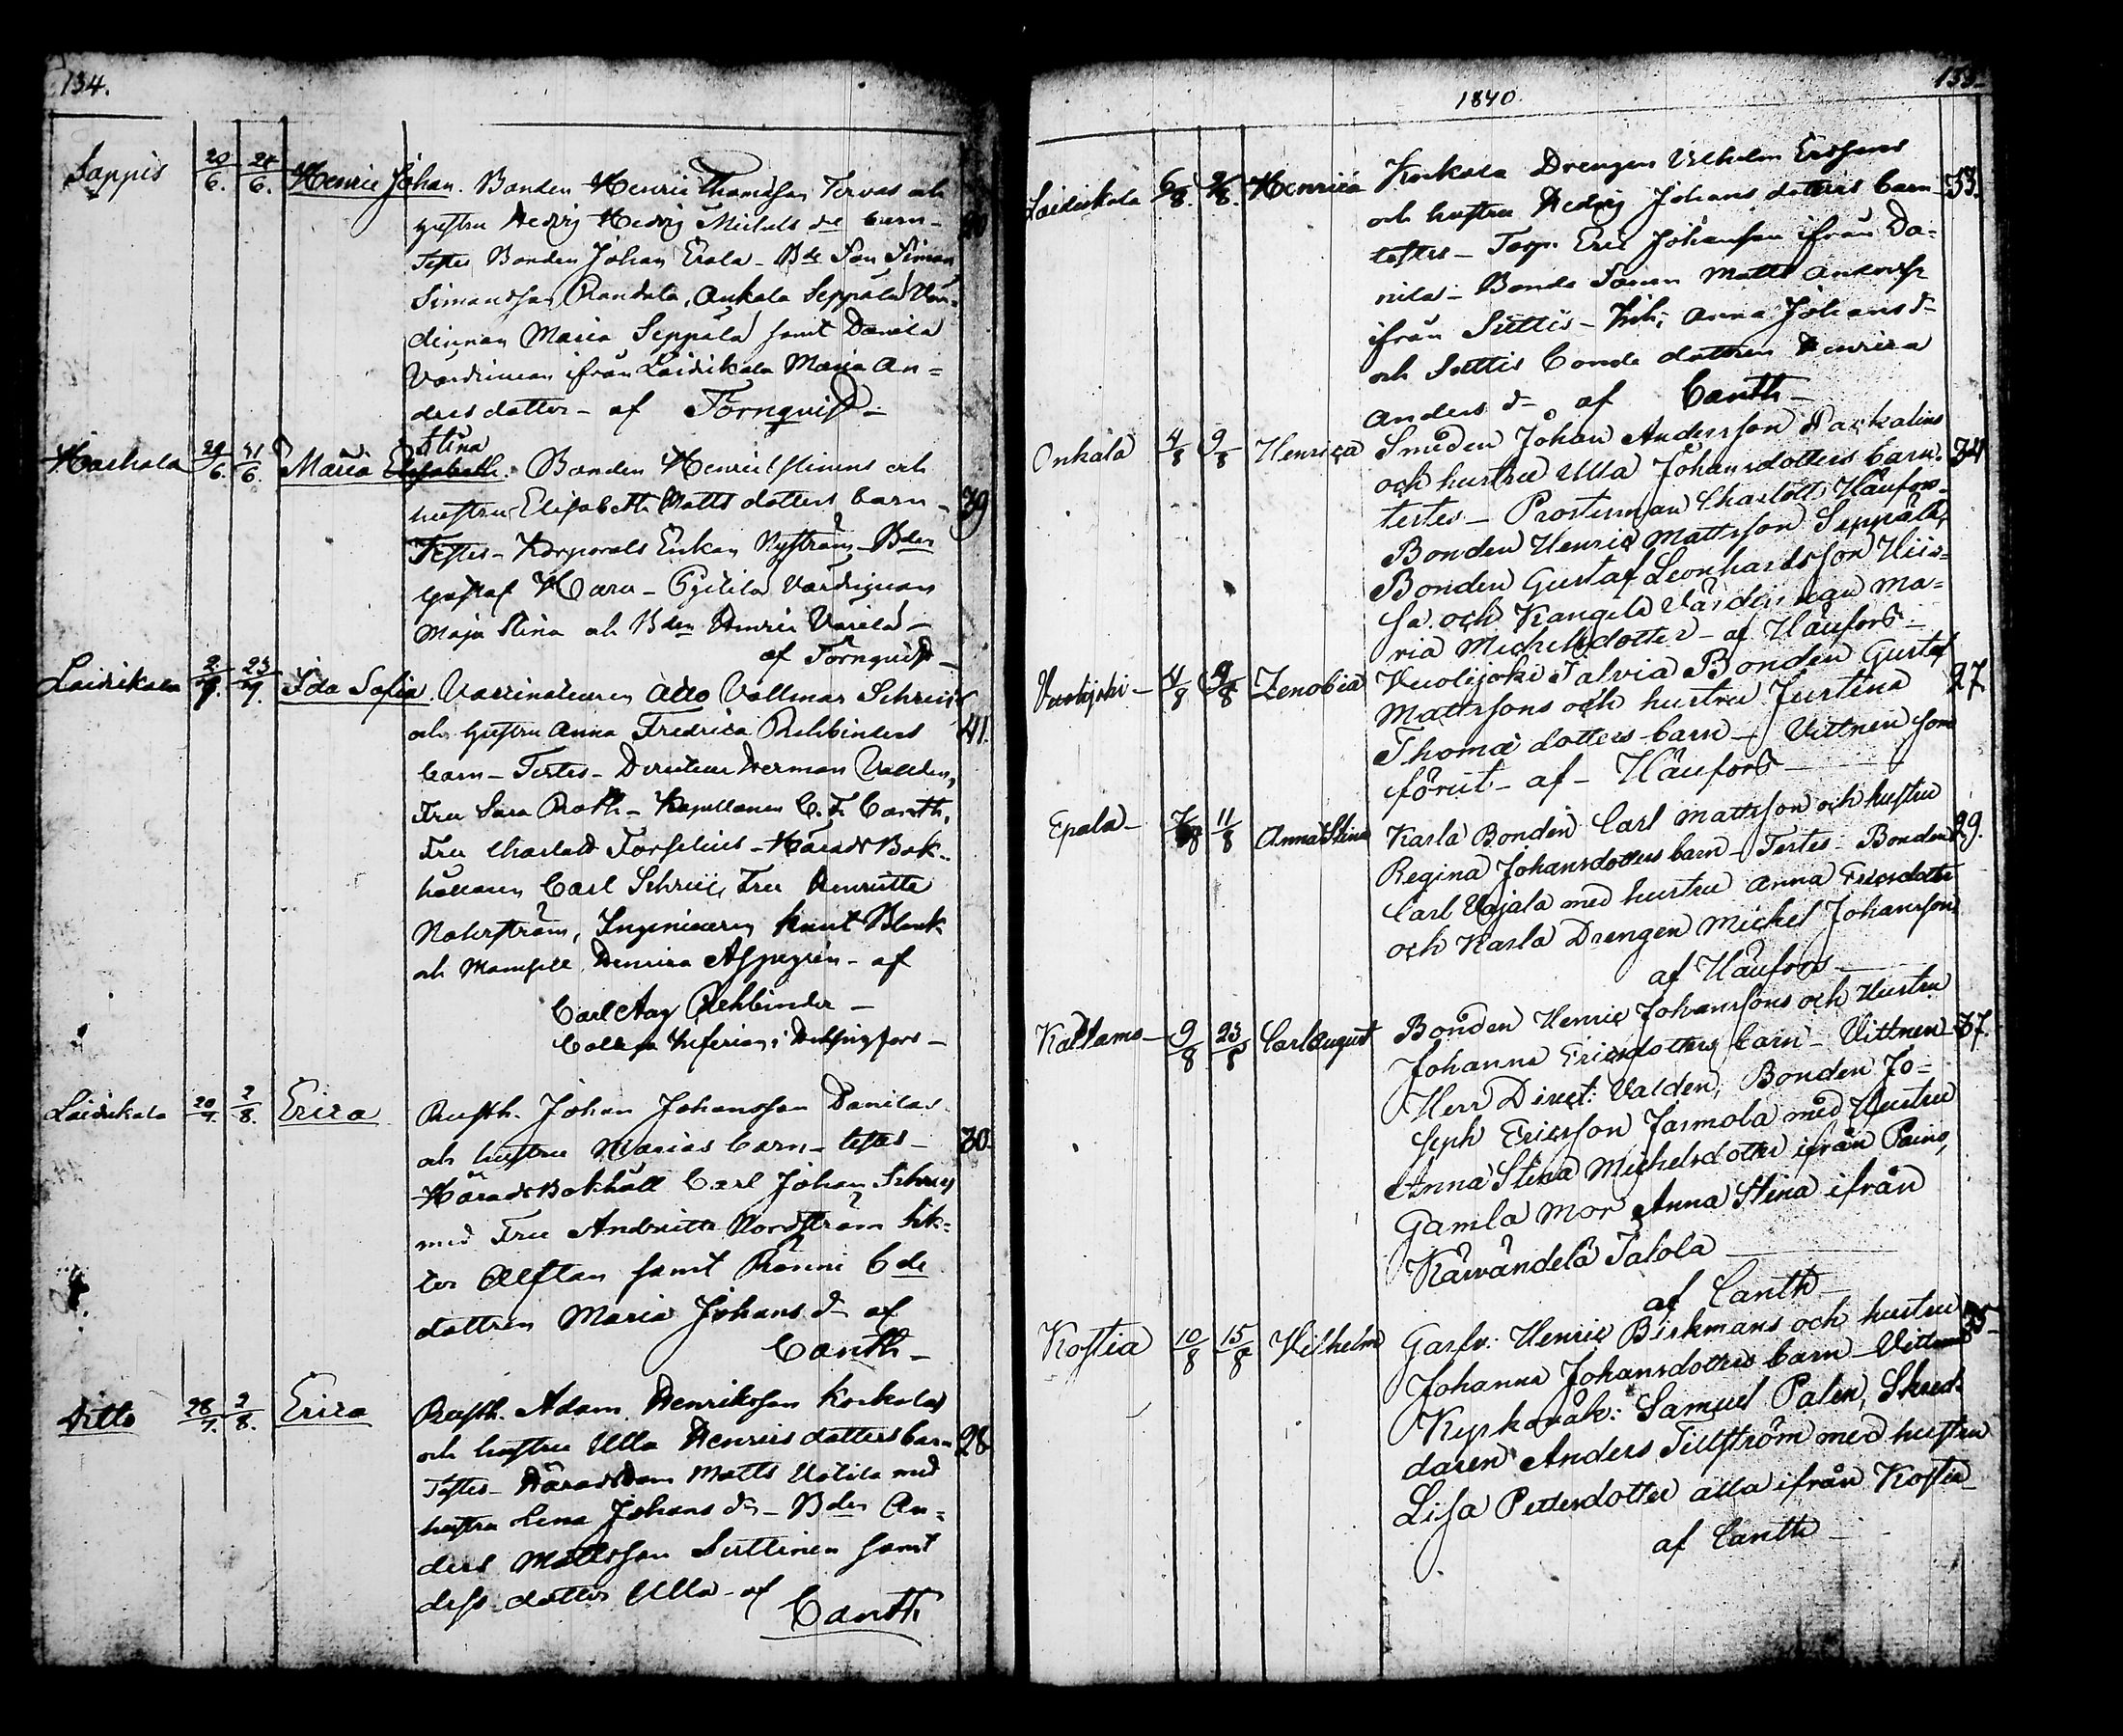 134.
Sappis 20/6. 24/6. Henric Johan. Bonden Henric Thomasson Tervas och
hustru Hedvig Hedvig Michels dr barn_
Testes Bonden Johan Erola _ Bde Son Simon
Simonsson Randala, Onkala Seppälä Vär-
dinnan Maria Seppälä samt Danila
Värdinnan ifrån Laidikala Maria An=
ders dotter _ af Törnqvist _
Stina
Haihala 29/6. Maria Elisabeth. Bonden Henric och
hustru Elisabeth Matts dotters barn _ 39
Testes _ Korporals Enkan Nyström _ Bden
Gustaf Haru _ Pytilä Värdinnan
Maja Stina och Bden Henric Varila _
af Törnqvist _
Laidikala 2/7. 23/7. Ida Sofia. Vaccinateuren Otto Vollmar Schreij
och hustru Anna Fredrica Rehbinders 41.
barn _ Testes _ Directeur Herman Vallden,
Fru Sara Roth _ Kapellanen C. F. Canth,
Fru Charlott Forselius _ Härads Bok-
hållaren Carl Schreij, Fru Henriette
Nohrström, Ingenieuren Knut Blank
och Mamsell Henrica Aspegrén _ af
Carl Aug Rehbinder _
Collega Inferior i Helsingfors _
Laidikala 20/7. 2/8. Erica Rusth. Johan Johansson Danilas
och hustru Marias barn _ testes _ 30.
Härads Bokhåll Carl Johan Schreij
med Fru Andriette Nordström
Alftan samt Ränni bde
dottren Maria Johans dr af
Canth _
Ditto 28/7. 2/8. Erica Rusth. Adam Henriksson Korkolas
och hustru Ulla Henrics dotters barn 28
Testes _ Häradsdom Matts Uotila med
hustru Lena Johans dr _ Bden An=
ders Mattsson Suttinen samt
dess dotter Ulla _ af
Canth
1840. 135.
Laidikala 6/8. Henrica Korkola Drengen Vilhelm Ericssons
och hustru Hedvig Johans dotters barn _ 33.
testes _ Torp. Eric Johansson ifrån Da=
nila _ Bonde Sonen Matts Andersson
ifrån Suttis _ Anna Johans dr
och Suttis bonde dottren Henrica
Anders dr af Canth _
Onkala 4/8 9/8 Henrica Smeden Johan Andersson Packalins
och hustru Ulla Johansdotters barn. 34
testes _ Prostinnan Charlott Häufors
Bonden Henric Mattsson Seppälä,
Bonden Gustaf Leonhardsson Hiis=
sa och Kangila Värdinnan Ma=
ria Michelsdotter _ af Häufors _
Vuolijoki _ 4/8 9/8 Zenobia Vuolijoki Talvia Bonden Gustaf
Mattssons och hustru Justina 27
Thomæ dotters barn _ Vittnen som
förut _ af _ Häufors _
Epala _ 7/8 11/8 Anna Stina Karla Bonden Carl Mattsson och hustru
Regina Johansdotters barn _ Testes _ Bonden 29.
Carl Uojala med hustru Anna Ericsdotter
och Karla Drengen Michel Johansson
af Häufors _
Kaltamo _ 9/8 23/8 Carl August Bonden Henric Johanssons och Hustru
Johanna Ericsdotters barn _ Vittnen _ 37.
Herr Direct: Valden, Bonden Jo=
seph Ericsson Jarmola med Hustru
Anna Stina Michelsdotter ifrån Paino,
Gamla Mor Anna Stina ifrån
Käwändelä Talola
af Canth _
Kostia 10/8 15/8 Vilhelm Garfv: Henric Birkmans och hustru
Johanna Johansdotters barn _ Vittnen
Kyrkovak: Samuel Palen, Skred-
daren Anders Tillström med hustru
Lisa Pettersdotter alla ifrån Kostia _
af Canth _